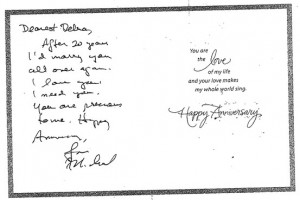 Dearest Debra,
After 20 years
I'd marry you
all over again.
I love you.
I need you.
You are precious
to me. Happy
Anniversary,
Love
Michael
You are
the
love
of my life
and your love makes
my whole world sing.
Happy Anniversary